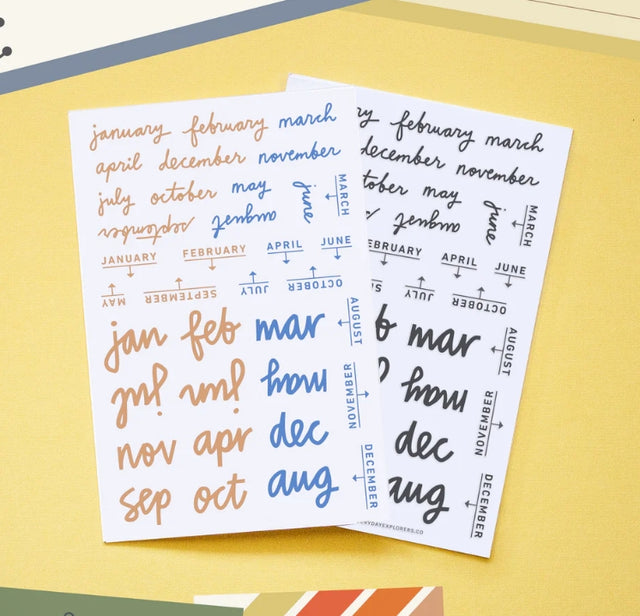 january february march
april december november
july october may june
MARCH
september august
JANUARY FEBRUARY APRIL JUNE
MAY SEPTEMBER JULY OCTOBER
jan feb mar
AUGUST
jul jun may
NOVEMBER
nov apr dec
DECEMBER
sep oct aug
ry february march
december november
tober may june
MARCH
august
EBRUARY APRIL JUNE
JULY OCTOBER
b mar
AUGUST
may
NOVEMBER
dec
DECEMBER
aug
RYDAYEXPLORERS.CO